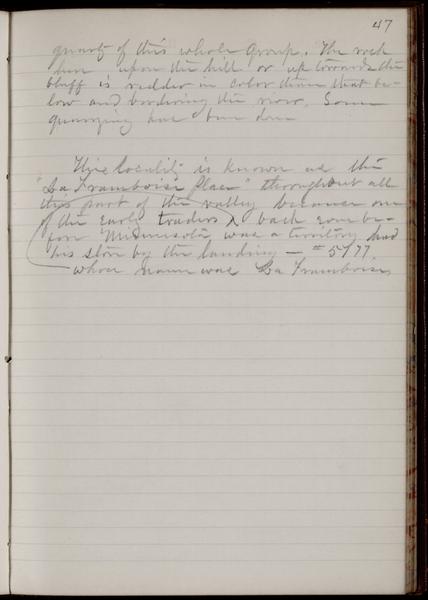 47
quartz of this whole group. The rock
here upon the hill or up towards the
bluff is redder in color than that be-
low and bordering the river. Some
quarrying has been done
This locality is known as the
"La Framboise Place" throughout all
this part of the valley because one
of the early traders ^ back some be-
fore Minnesota was a territory had
his store by the landing —
whose name was La Framboise,